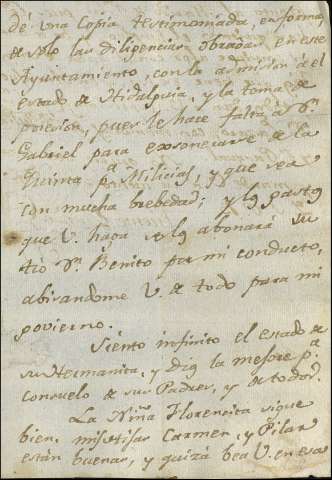 dé una Copia testimoniada, en forma
de solo las diligencias obradas en ese
Ayuntamiento, con la admision a el
estado de Hidalguia, y la toma de
posesion, pues le hace falta á Dn.
Gabriel para exsonerarse de la
Quinta pa. Milicias, y que sea
con mucha brebedad; y los gastos
que V. haga se los abonará su
tio Dn. Benito por mi conducto,
abisandome V. de todo para mi
govierno.
Siento infinito el estado de
su Hermanita, y Dios la mejore pa.
consuelo de sus Padres, y de todos.
La Niña Florencita sigue
bien, mis hijas Carmen, y Pilar
están buenas, y quizá bea V. en esa